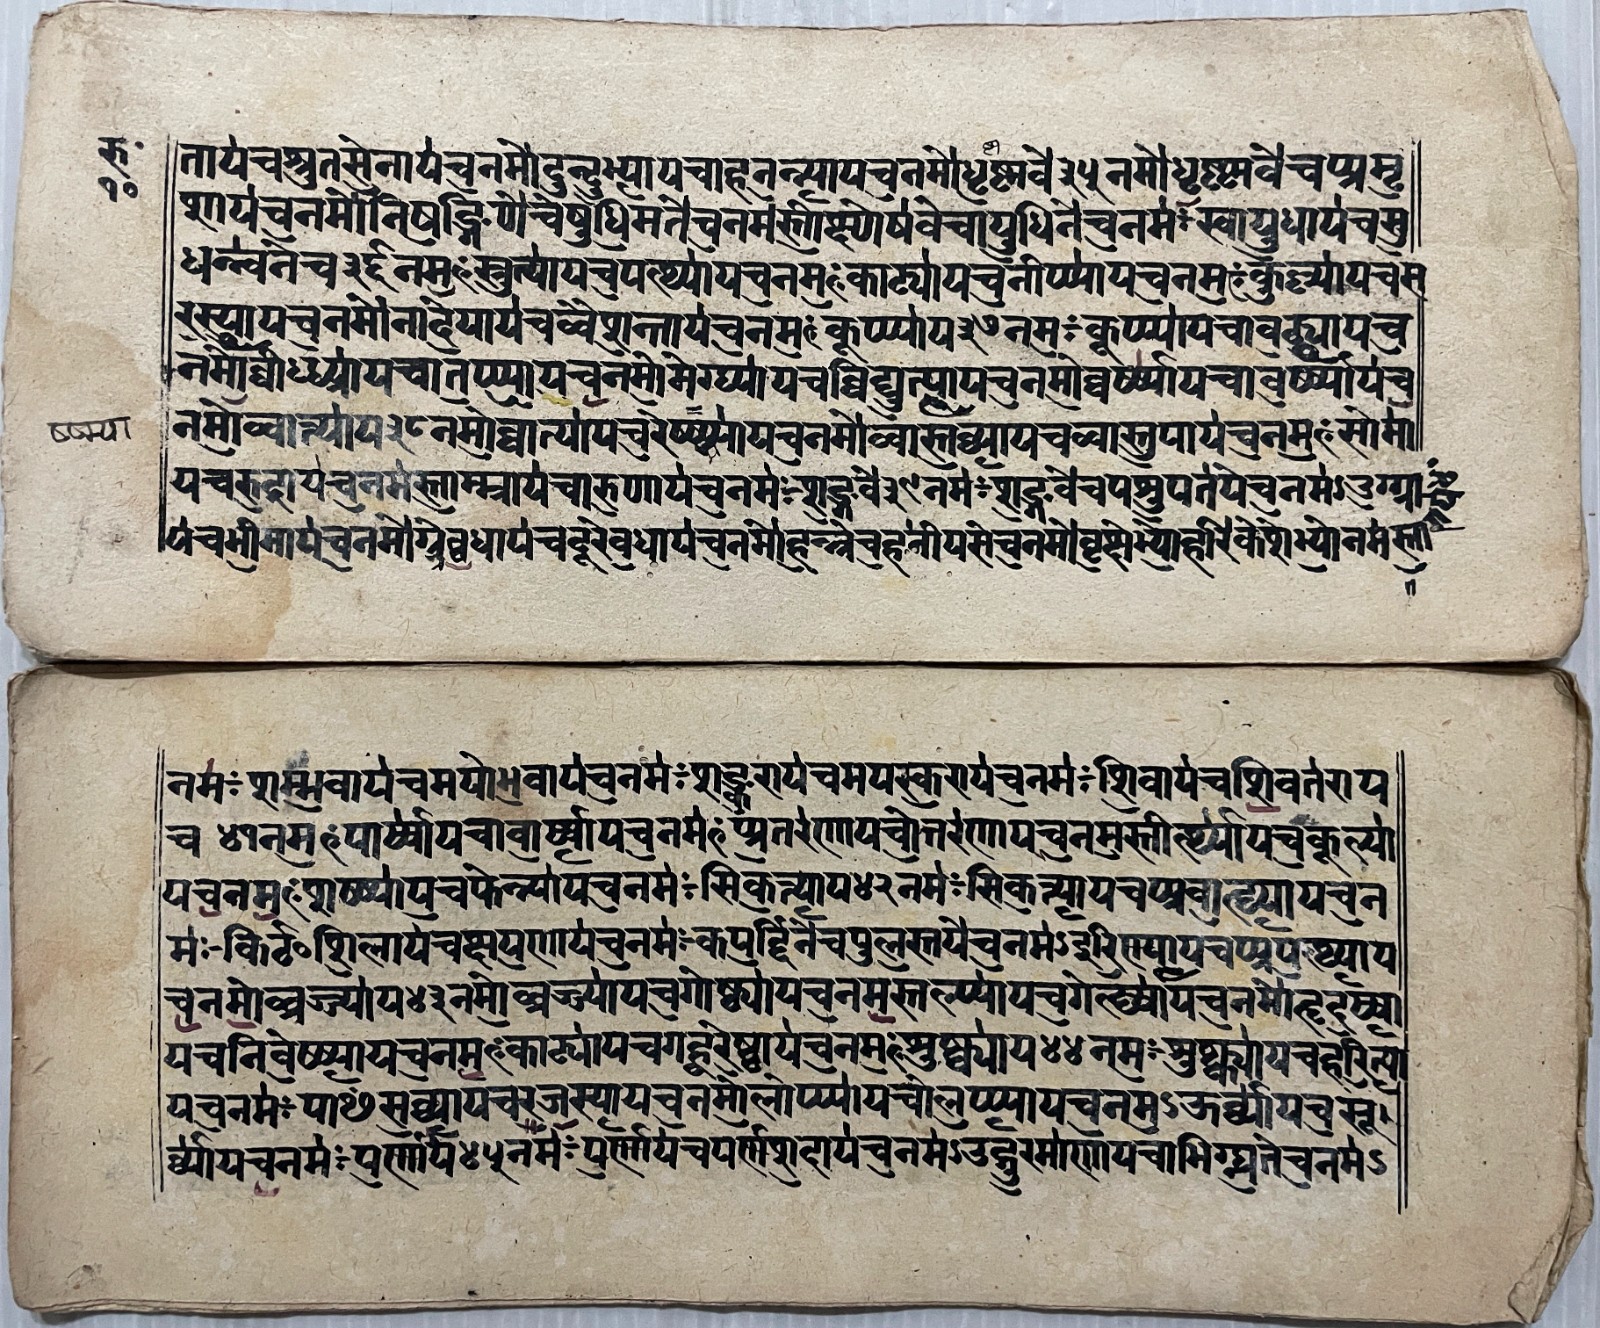 रु॰
१०
तायचश्रुतसेनायचनमोदुन्दुभ्यायचाहनन्न्यायचनमोधृष्णवे३५नमोधृष्णवेचप्प्रमृ
शायचनमोनिषङ्गिणेचेषुधिमतेचनमस्तीक्ष्णेषवेचायुधिनेचनमःस्वायुधायचसु
धन्न्वनेच३६नमःस्रुत्यायचपत्थ्यायचनमःकाट्यायचनीप्प्यायचनमःकुल्ल्यायचस
रस्यायचनमोनादेयायचव्वैशन्तायचनमःकूप्प्याय३७नमःकूप्प्यायचावट्यायच
नमोव्वीध्र्यायचातप्प्यायचनमोमेग्घ्यायचव्विद्युत्त्यायचनमोव्वर्ष्यायचावर्ष्यायच
नमोव्वात्त्याय३८नमोव्वात्यायचरेष्म्यायचनमोव्वास्तव्व्यायचव्वास्तुपायचनमःसोमा
यचरुद्रायचनमस्ताम्म्रायचारुणायचनमःशङ्गवे३९नमःशङ्गवेचपशुपतयेचनमऽउग्ग्रा
यचभीमायचनमोग्ग्रेवधायचदूरेवधायचनमोहन्त्रेचहनीयसेचनमोवृक्षेभ्योहरिकेशेभ्योनमस्ता
नमःशम्भवायचमयोभवायचनमःशङ्करायचमयस्करायचनमःशिवायचशिवतराय
च४१नमःपार्य्यायचावार्य्यायचनमःप्प्रतरणायचोत्तरणायचनमस्तीर्त्थ्यायचकूल्या
यचनमःशष्प्यायचफेन्यायचनमःसिकत्याय४२नमःसिकत्यायचप्प्रवाह्यायचन
मःकिर्ठ॰शिलायचक्षयणायचनमःकपर्द्दिनेचपुलस्तयेचनमऽइरिण्यायचप्प्रपत्थ्याय
चनमोव्व्रज्ज्याय४३नमोव्व्रज्ज्यायचगोष्ठ्यायचनमस्तल्प्यायचगेह्यायचनमोहृदय्या
यचनिवेष्प्यायचनमःकाट्यायचगह्वरेष्ठायचनमःशुष्क्याय४४नमःशुष्क्यायचहरित्या
यचनमःपाꣳसव्यायचरजस्यायचनमोलोप्प्यायचोलप्प्यायचनमऽऊर्व्व्यायचसू
र्व्व्यायचनमःपर्णाय४५नमःपर्णायचपर्णशदायचनमऽउद्गुरमाणायचाभिग्घ्नतेचनमऽ